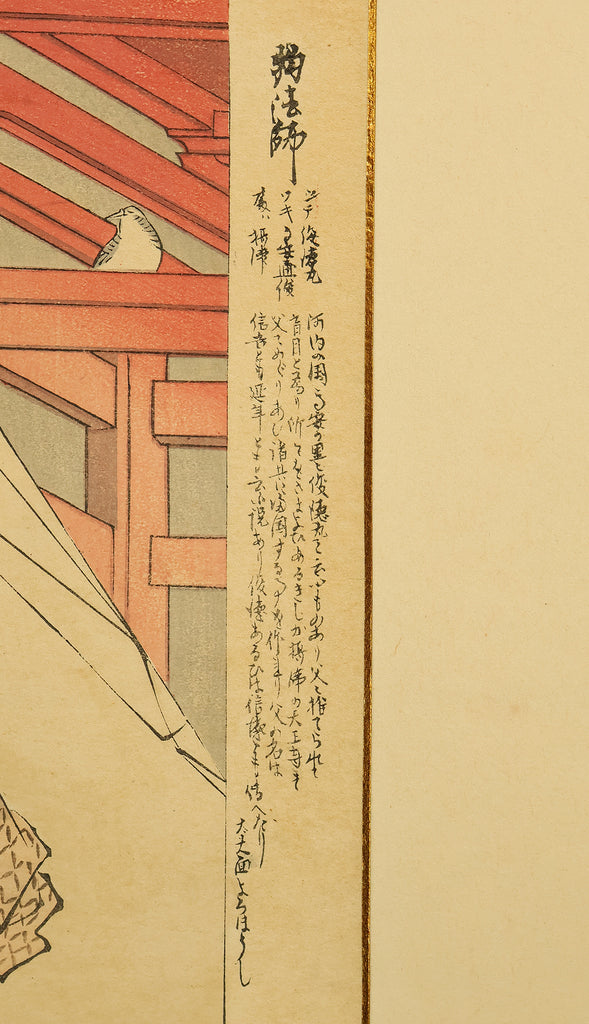 弱法師
シテ 俊徳丸
ワキ 高安通俊
處ハ 摂津
河内の国高安の里に俊徳丸と云いものあり父に捨てられて
盲目と為り所々をさまよひあるきしが摂津の天王寺にて
父にめぐりあひ諸共に帰国する事を作れり父の名は
信吉とも延年とも云ふ説あり俊徳あるひは信徳とも傳へたり
大夫面よろぼうし